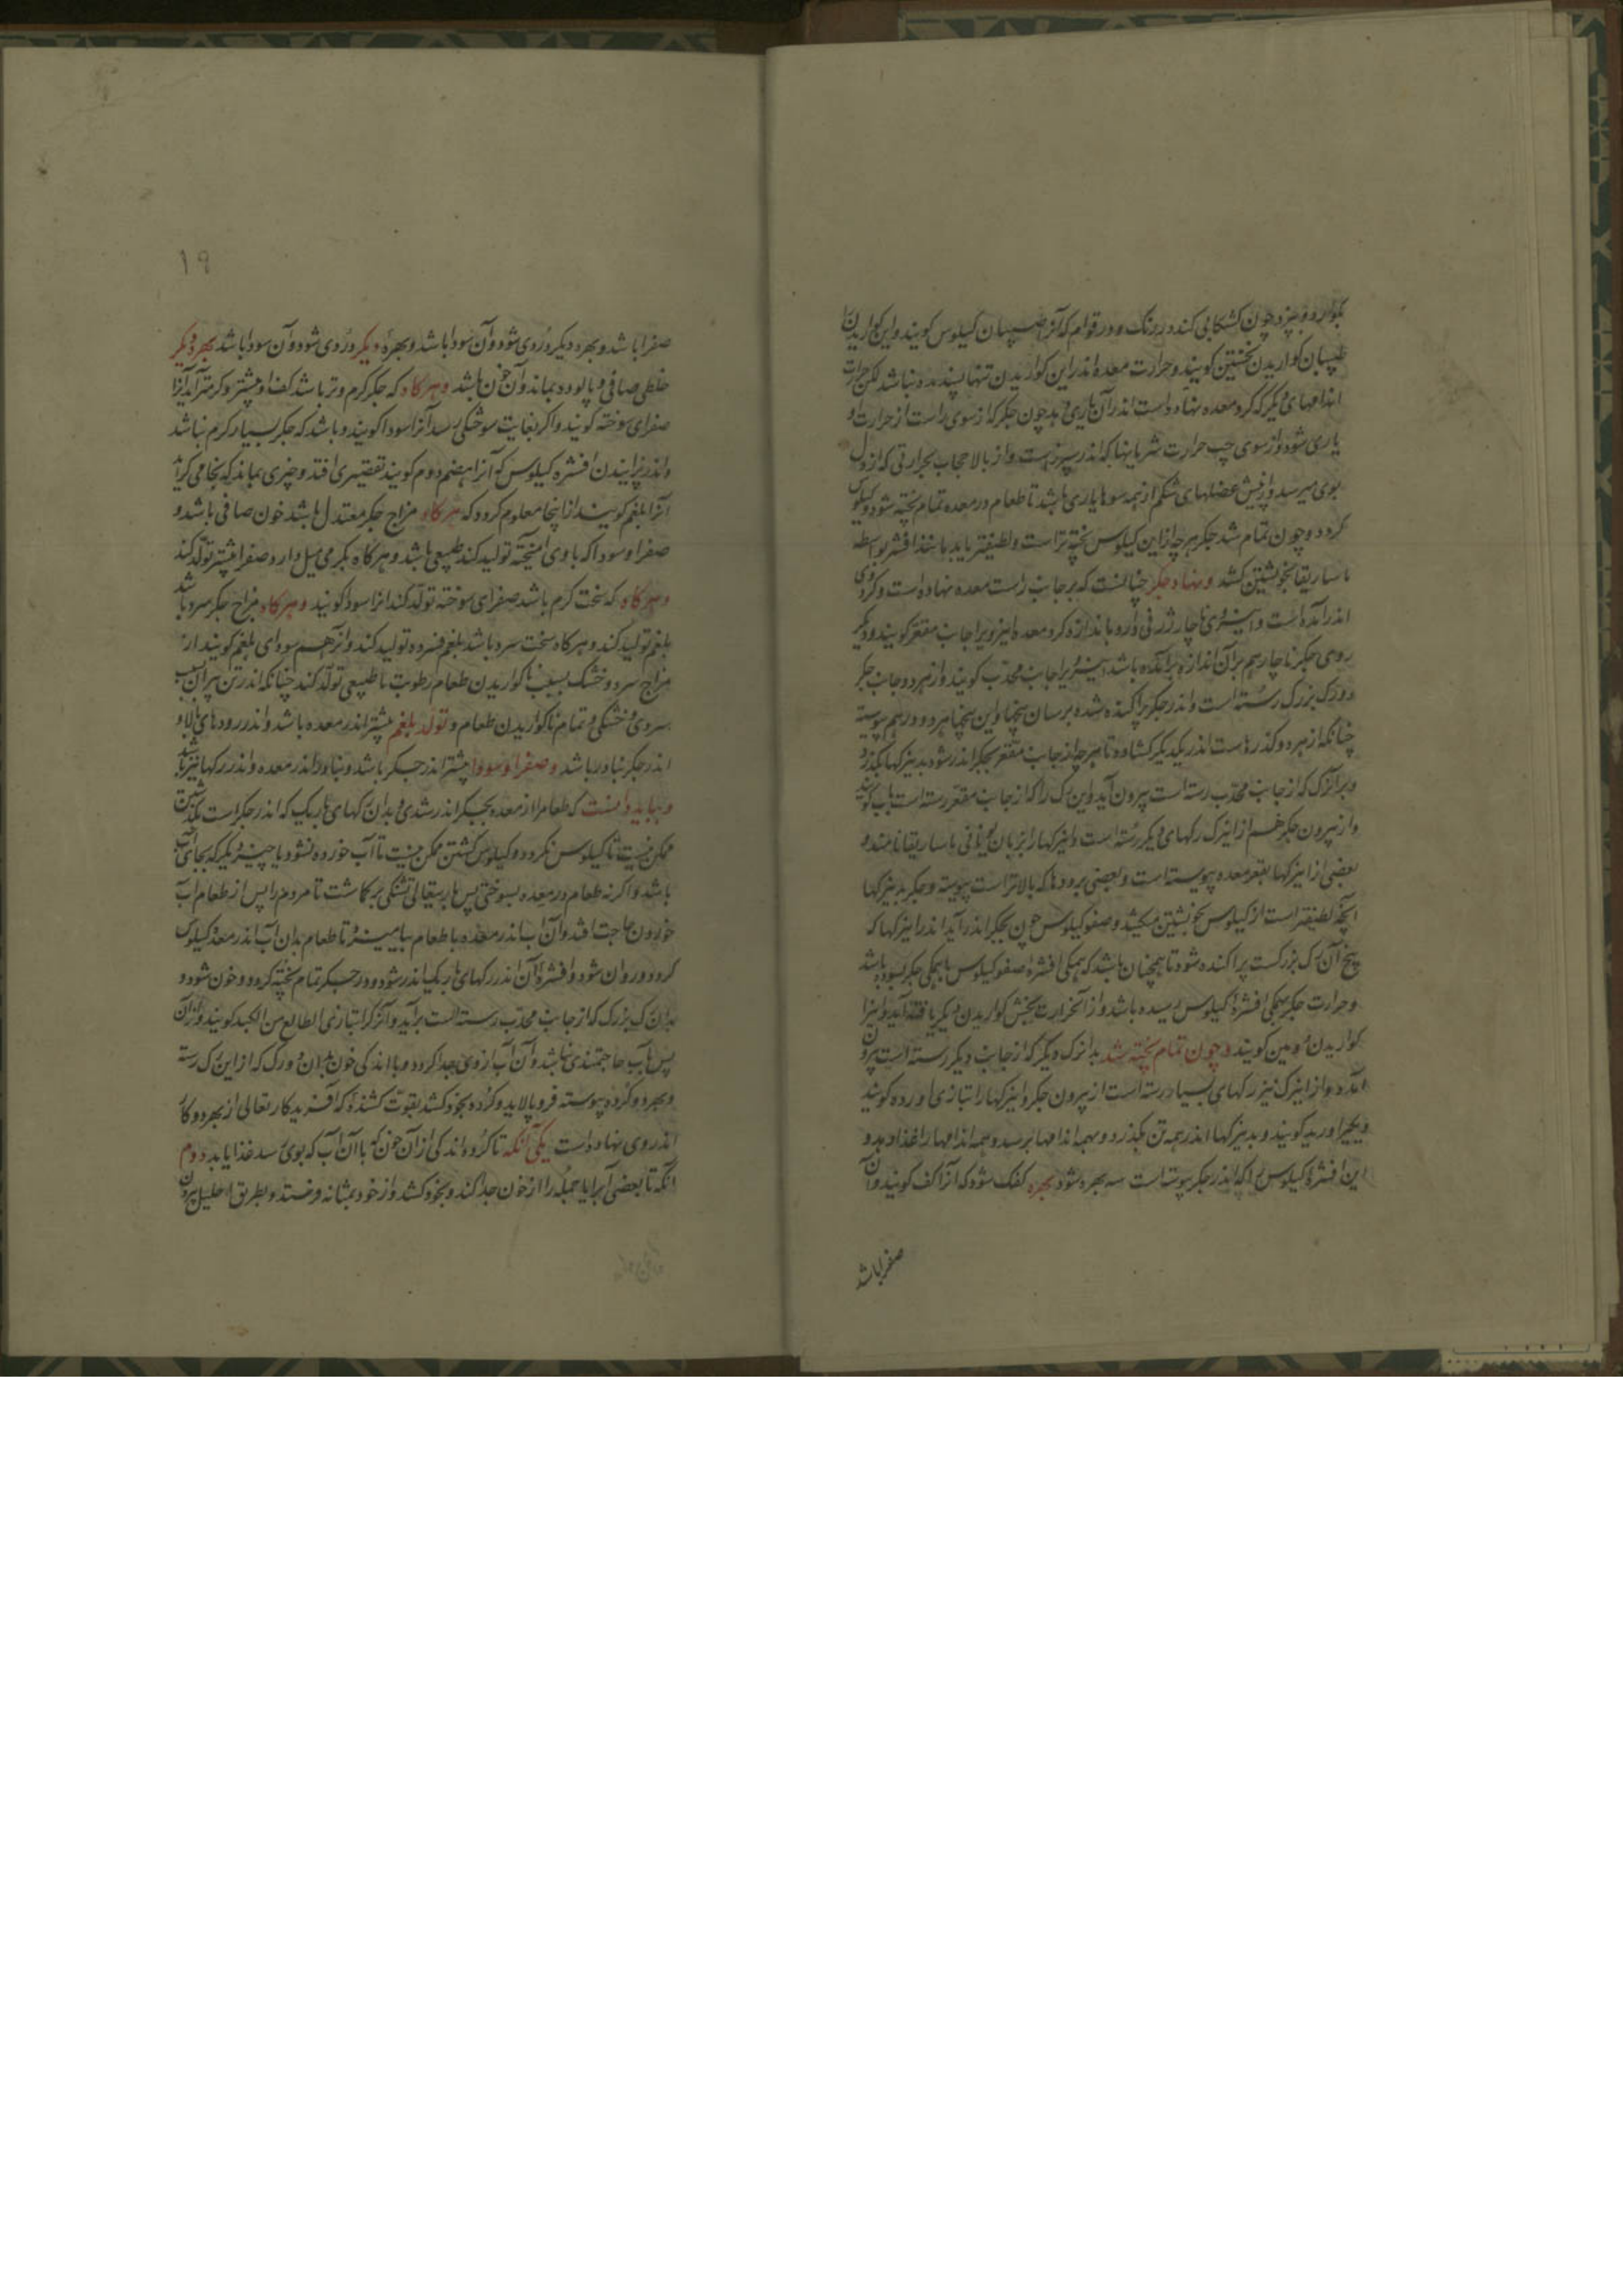 بکوارد و بپزد چون کشکابی کند در رنگ و در قوام که آنرا طبیبان کیلوس کویند و این کواریدن را
طبیبان کواریدن نخستین کویند و حرارت معده اندر این کواریدن تنها بسنده نباشد لکن حرارت
اندامهای دیکر که کرد معده نهاده است اندر آن یاری دهد چون جکر که از سوی راست از حرارت او
یاری شود و از سوی چپ حرارت شریانها که اندر سپرز است و از بالا حجاب بحرارتی که از دل
بوی میرسد و از پیش عضلهای شکم از همه سوها یاری باشد تا طعام در معده تمام پخته شود و کیلوس
کردد و چون تمام شد جکر هرچه از این کیلوس پخته تر است و لطیفتر باید مانند افشره بواسطه
ماساریقا بخویشتن کشد و نهاد جکر چنانست که بر جانب راست معده نهاده است و کرد وی
اندر آمده است و این روی ناچار ژرفی دارد باندازه کرد معده این روی را جانب مقعر کویند و دیکر
روی جکر ناچار هم بر آن اندازه برآمده باشد این روی را جانب محدب کویند و از هر دو جانب جکر
دو رک بزرک رسته است و اندر جکر پراکنده شده بر سان بیخها و این بیخها هر دو در هم پیوسته
چنانکه از هر دو کذرهاست اندر یکدیکر کشاده تا هرچه از جانب مقعر بجکر اندر شود بدین رکها بکذرد
و بر آن رک که از جانب محدب رسته است بیرون آید و این رک را که از جانب مقعر رسته است باب کویند
و از بیرون جکر هم از این رک رکهای دیکر رسته است و این رکها را بزبان یونانی ماساریقا نامند و
بعضی از این رکها بقعر معده پیوسته است و بعضی برودها که بالاتر است پیوسته و جکر بدین رکها
آنچه لطیفتر است از کیلوس بخویشتن میکشد و صفو کیلوس چون بجکر اندر آید اندر این رکها که
بیخ آن رک بزرکست پراکنده شود تا همچنان باشد که همکی افشره صفو کیلوس با همکی جکر بسوده باشد
و حرارت جکر بهمکی افشرهٔ کیلوس رسیده باشد و از آن حرارت بخش کواریدن دیکر یافته آید و این را
کواریدن دومین کویند و چون تمام پخته شد بدان رک دیکر که از جانب دیکر رسته است بیرون
آمده و از این رک نیز رکهای بسیار رسته است از بیرون جکر و این رکها را بتازی اورده کویند
و یکی را ورید کویند و بدین رکها اندر همه تن بکذرد و بهمه اندامها برسد و همه اندامها را غذا دهد و
این افشرهٔ کیلوس را که اندر جکر پیوسته است سه بهره شود بهره کفک شود که آنرا کف کویند و آن
صفرا باشد
۱۹
صفرا باشد و بهره دیکر دُردی شود و آن سودا باشد و بهرهٔ دیکر دردی شود و آن سودا باشد بهره دیکر
خلطی صافی و پالوده بماند و آن خون باشد و هرکاه که جکر کرم و تر باشد کف او بیشتر و کرمتر آید آنرا
صفرای سوخته کویند و اکر بغایت سوختکی رسد آنرا سودا کویند و باشد که جکر بسیار کرم نباشد
و اندر پزانیدن افشره کیلوس که آنرا هضم دوم کویند تقصیری افتد و چیزی بماند که بخامی کراید
آنرا بلغم کویند از اینجا معلوم کردد که هرکاه مزاج جکر معتدل باشد خون صافی باشد و
صفرا و سودا که با وی آمیخته تولید کند طبیعی باشد و هرکاه بکرمی میل دارد صفرا بیشتر تولد کند
و هرکاه که سخت کرم باشد صفرای سوخته تولد کند آنرا سودا کویند و هرکاه مزاج جکر سرد باشد
بلغم تولید کند و هرکاه سخت سرد باشد بلغم فسرده تولید کند و آنرا هم سودای بلغم کویند از
مزاج سرد و خشک بسبب ناکواریدن طعام رطوبت ناطبیعی تولد کند چنانکه اندر تن پیران بسبب
سردی و خشکی و تمام ناکواریدن طعام و تولد بلغم بیشتر اندر معده باشد و اندر رودهای بالا و
اندر جکر نادر باشد و صفرا و سودا بیشتر اندر جکر باشد و بنادر اندر معده و اندر رکها نیز باشد
و بباید دانست که طعام را از معده بجکر اندر شدی و بدان رکهای باریک که اندر جکر است بکذشتن
ممکن نیست تا کیلوس نکردد و کیلوس کشتن ممکن نیست تا آب خورده نشود یا چیزی دیکر که بجای آب
باشد و اکر نه طعام در معده بسوختی پس باریتعالی تشنکی برکماشت تا مردم را پس از طعام آب
خوردن حاجت افتد و آن آب اندر معده با طعام بیامیزد تا طعام بدان آب اندر معده کیلوس
کردد و روان شود و افشرهٔ آن اندر رکهای باریک اندر شود و در جکر تمام پخته کردد و خون شود و
بدان رک بزرک که از جانب محدب رسته است برآید و آن رک را بتازی الطالع من الکبد کویند و از آن
پس بآب حاجتمندی نباشد و آن آب از وی جدا کردد و با اندکی خون بدان دو رک که از این رک رسته
و بهر دو کرده پیوسته فرو پالاید و کرده بخود کشد بقوت کشندهٔ که آفریدکار تعالی از بهر دو کار
اندر وی نهاده است یکی آنکه تا کرده اندکی از آن خون که با آن آب که بوی رسد غذا یابد دوم
آنکه تا بعضی آب را یا جمله را از خون جدا کند و بخود کشد و از خود بمثانه فرستد و بطریق احلیل بیرون